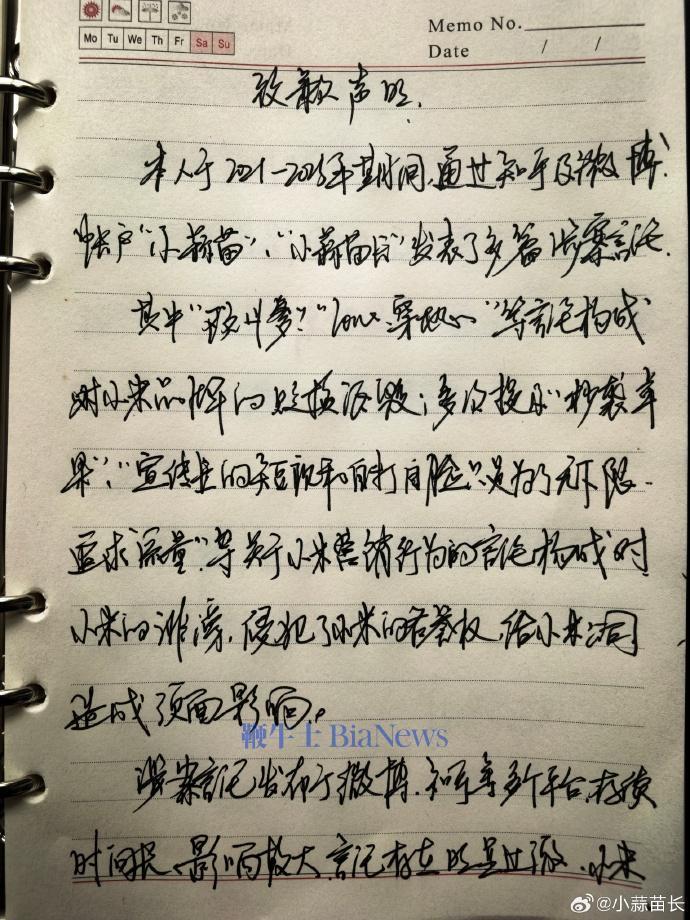 Memo No.
Mo Tu We Th Fr Sa Su
Date / /
致歉声明.
本人于2021-2025年期间,通过知乎及微博
帐户"小蒜苗"、"小蒜苗长"发表了多篇涉案言论.
其中""等言论构成
对小米品牌的诋毁;多次提及"抄袭苹
果"、"宣传上的短视和自打自脸只是为了无下限
追求流量"等关于小米营销行为的言论构成对
小米的诽谤,侵犯了小米的名誉权,给小米公司
造成负面影响。
鞭牛士 BiaNews
涉案言论发布于微博、知乎等多个平台,存续
时间长、影响较大,言论存在明显过激、小米
@小蒜苗长